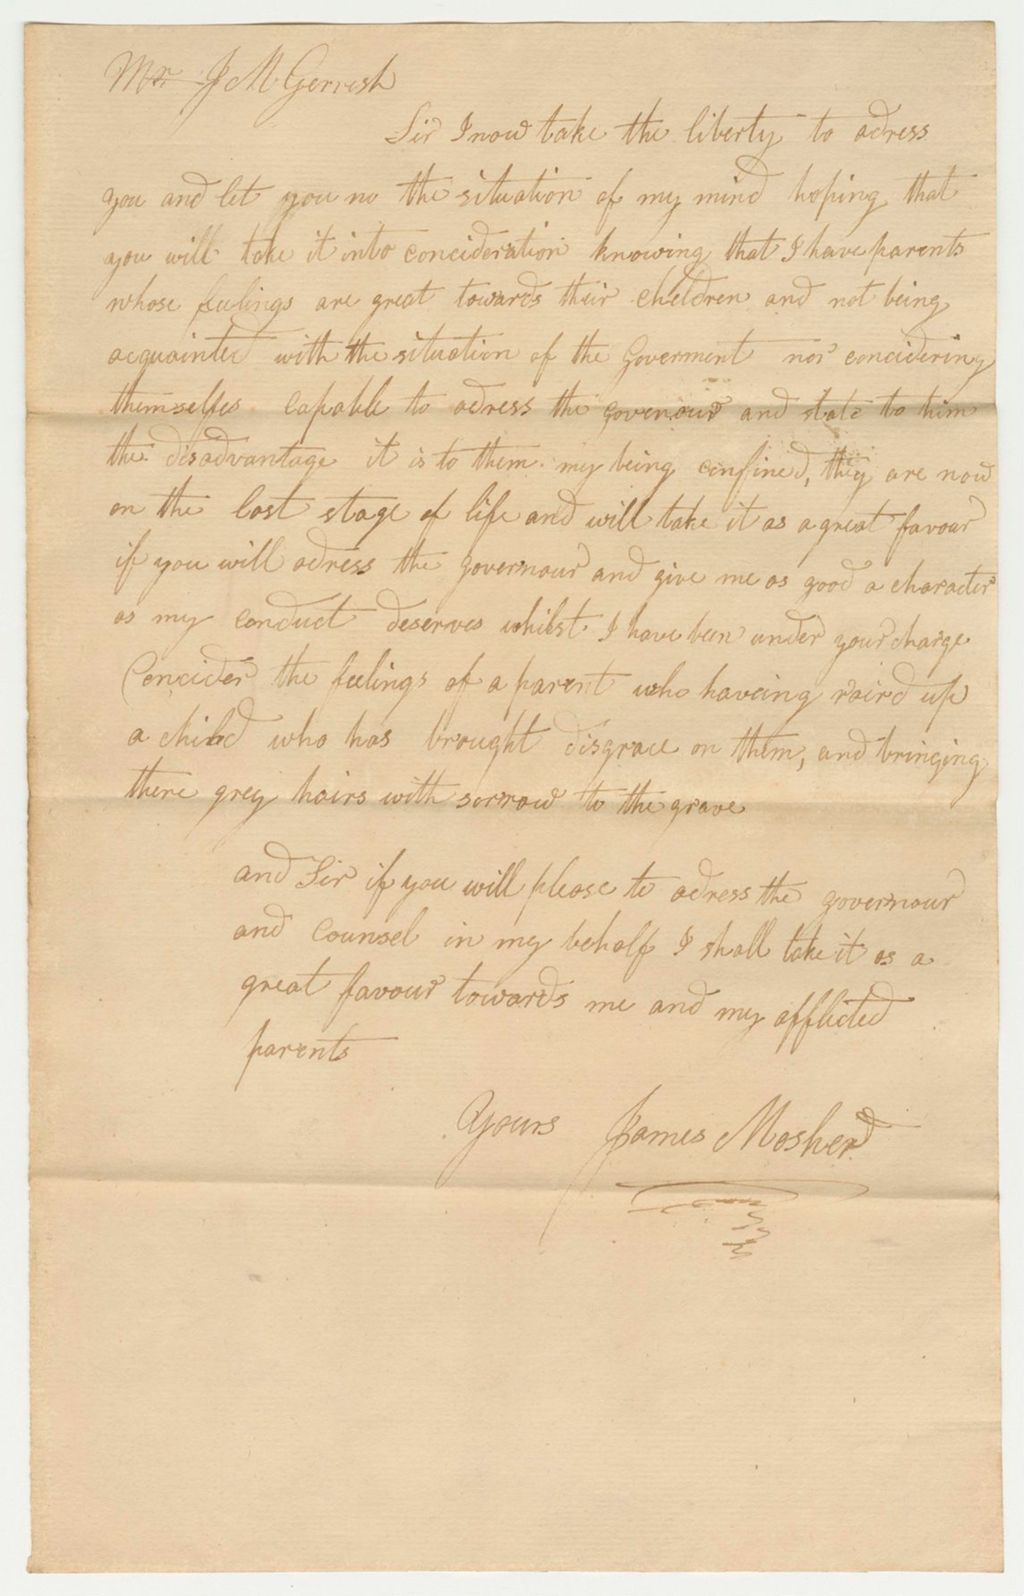 Mr J M Gerrish
Sir I now take the liberty to adress
you and let you no the situation of my mind hoping that
you will take it into concideration knowing that I have parents
whose feelings are great towards their children and not being
acquainted with the situation of the Goverment nor concidering
themselfes capable to adress the Govenour and state to him
the disadvantage it is to them my being confined, they are now
on the last stage of life and will take it as a great favour
if you will adress the governour and give me as good a character
as my conduct deserves whilst I have been under your charge
Concider the feelings of a parent who haveing raird up
a child who has brought disgrace on them, and bringing
there grey hairs with sorrow to the grave
and Sir if you will please to adress the governour
and Counsel in my behalf I shall take it as a
great favour towards me and my afflicted
parents
Yours James Mosherd